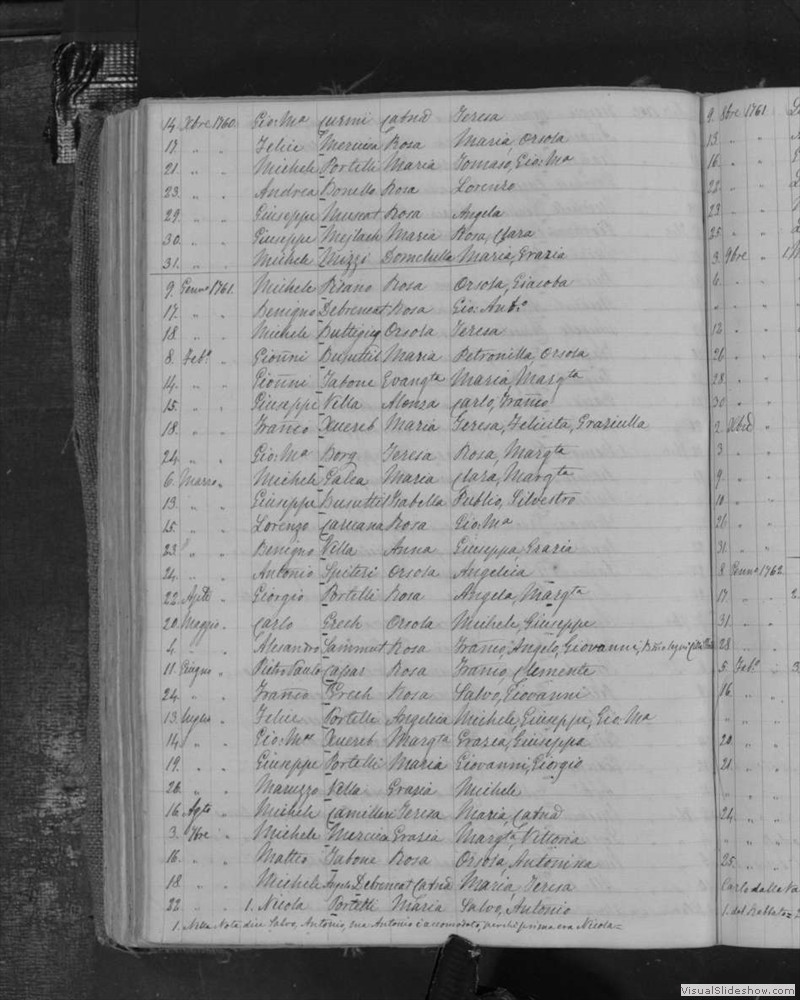 14. Xbre 1760. Gio: Mª Curmi Catnª Teresa
17. " " Felice Mercieca Rosa Maria, Orsola
21. " " Michele Portelli Maria Tomaso, Gio: Mª
23. " " Andrea Bonello Rosa Lorenzo
29. " " Giuseppe Muscat Rosa Angela
30. " " Giuseppe Mejlach Maria Rosa, Clara
31. " " Michele Mizzi Domchella Maria, Grazia
9. Gennº 1761. Michele Pisano Rosa Orsola, Giacoba
17. " " Benigno Debrincat Rosa Gio: Antº
18. " " Michele Buttigieg Orsola Teresa
8. Febº " Gioñni Busuttil Maria Petronilla, Orsola
14. " " Gioñni Tabone Evangta Maria, Margta
15. " " Giuseppe Vella Alonza Carlo, Franco
18. " " Franco Xuereb Maria Teresa, Felicita, Graziulla
24. " " Gio: Mª Borg Teresa Rosa, Margta
6. Marzo " Michele Galea Maria Clara, Margta
13. " " Giuseppe Busuttil Isabella Publio, Silvestro
15. " " Lorenzo Caruana Rosa Gio: Mª
23. " " Benigno Vella Anna Giuseppa, Grazia
24. " " Antonio Spiteri Orsola Angelica
22. Aple " Giorgio Portelli Rosa Angela, Margta
20. Maggio " Carlo Grech Orsola Michele, Giuseppe
4. " " Alesandro Sammut Rosa Franco, Angelo, Giovanni,
11. Giugno " Pietro Paulo Caspar Rosa Franco, Clemente
24. " " Franco Grech Rosa Salvo, Giovanni
13. Luglio " Felice Portelli Angelica Michele, Giuseppe, Gio: Mª
14. " " Gio: Mª Xuereb Margta Grazia, Giuseppa
19. " " Giuseppe Portelli Maria Giovanni, Giorgio
26. " " Maruzzo Vella Grazia Michele
16. Agto " Michele Camilleri Teresa Maria, Catnª
3. 7bre " Michele Mercieca Grazia Margta, Vittoria
16. " " Matteo Tabone Rosa Orsola, Antonina
18. " " Michele Debrincat Catnª Maria, Teresa
22. " " 1. Nicola Portelli Maria Salvo, Antonio
1. Nella Nota dice Salvo, Antonio, ma Antonio è accomodato, perchè prima era Nicola=
9. 8bre 1761
13. " "
16. " "
22. " "
23. " "
25. " "
3. 9bre "
6. " "
" "
12. " "
26. " "
28. " "
30. " "
2. Xbre
3. " "
9. " "
10. " "
26. " "
31. " "
8. Gennº 1762
17. " "
31. " "
28. " "
5. Febº "
16. " "
" "
20. " "
21. " "
" "
24. " "
" "
25. " "
Carlo dalla
1. del
VisualSlideshow.com